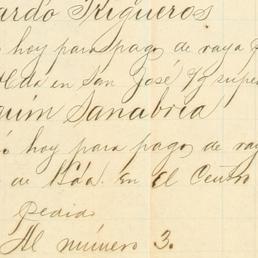 ardo Rigueros
hoy para pago de raya
Hda en San José y supe
uim Sanabria
ó hoy para pago de ra
de Hda. en el Centro
pedia
Al número 3.